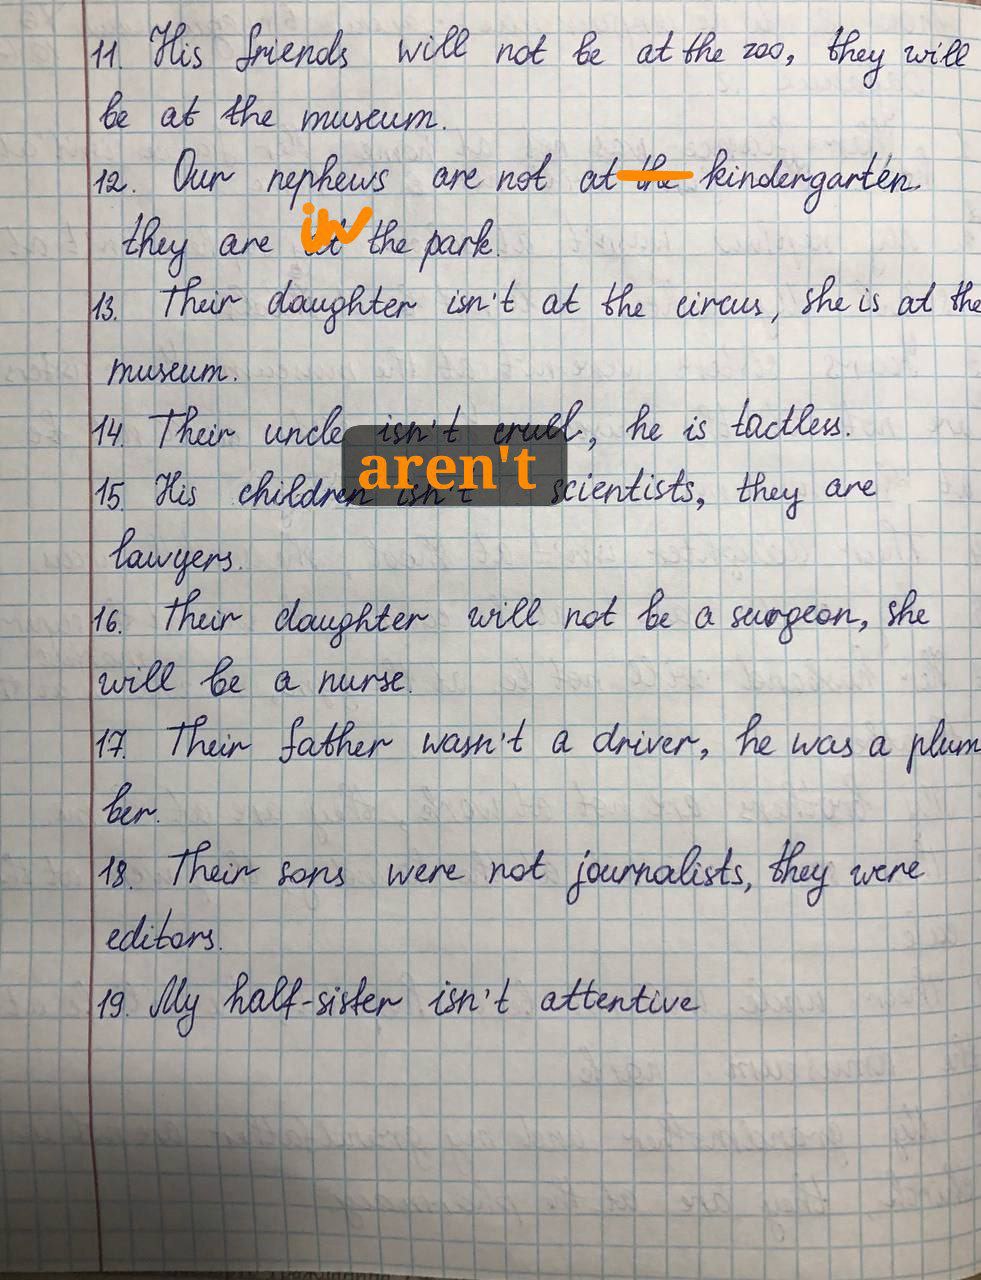 11. His friends will not be at the zoo, they will
be at the museum.
12. Our nephews are not at the kindergarten.
in
they are at the park.
13. Their daughter isn't at the circus, she is at the
museum.
14. Their uncle isn't cruel, he is tactless.
aren't
15 His children isn't scientists, they are
lawyers.
16. Their daughter will not be a surgeon, she
will be a nurse.
17. Their father wasn't a driver, he was a plum
ber.
18. Their sons were not journalists, they were
editors.
19. My half-sister isn't attentive